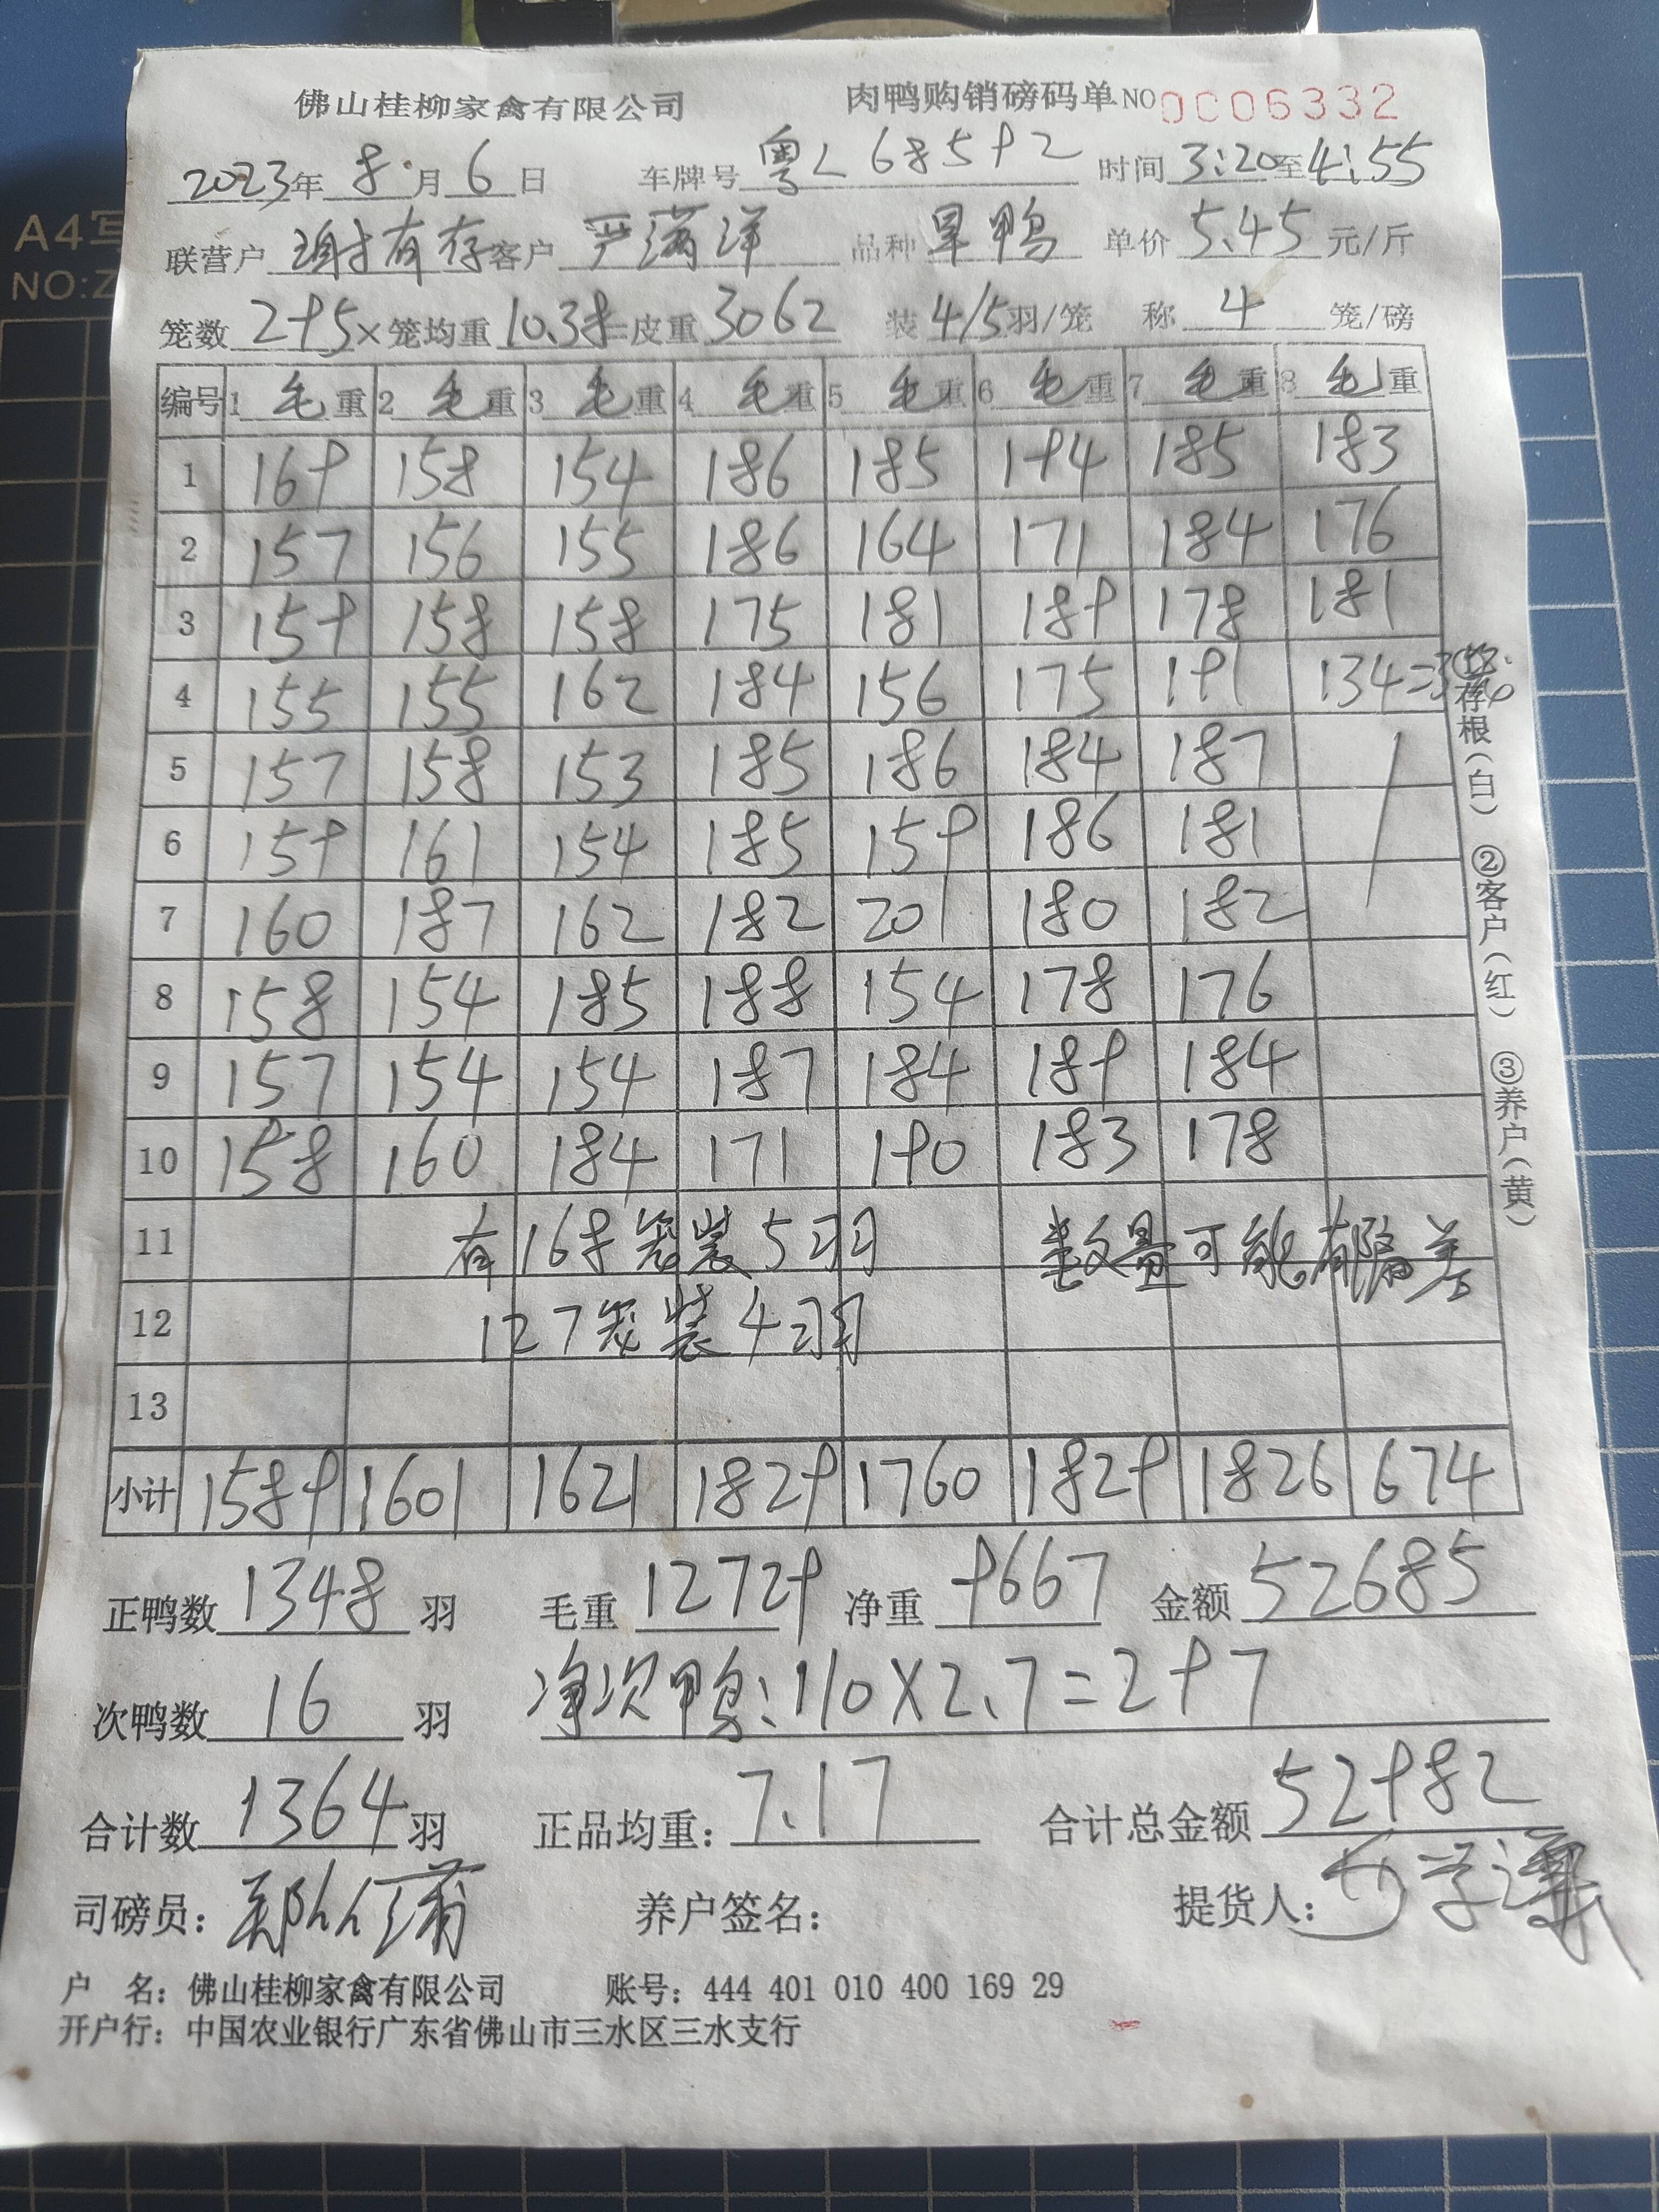 佛山桂柳家禽有限公司 肉鸭购销磅码单 NO 0006332
2023年 8月 6日 车牌号 粤L68592 时间 3:20至4:55
联营户 谢有存 客户 严满洋 品种 旱鸭 单价 5.45 元/斤
笼数 295×笼均重 10.38=皮重 3062 装 4/5羽/笼 称 4 笼/磅
编号 1 毛重 2 毛重 3 毛重 4 毛重 5 毛重 6 毛重 7 毛重 8 毛重
1 169 158 154 186 185 194 185 183
2 157 156 155 186 164 171 184 176
3 159 158 158 175 181 189 178 181
4 155 155 162 184 156 175 191 134=3笼
5 157 158 153 185 186 184 187
6 159 161 154 185 159 186 181
7 160 187 162 182 201 180 182
8 158 154 185 188 154 178 176
9 157 154 154 187 184 189 184
10 158 160 184 171 190 183 178
11 有168笼装5羽 数量可能有偏差
12 127笼装4羽
13
小计 1589 1601 1621 1829 1760 1829 1826 674
①存根(白) ②客户(红) ③养户(黄)
正鸭数 1348 羽 毛重 12729 净重 9667 金额 52685
次鸭数 16 羽 净次鸭:110×2.7=297
合计数 1364 羽 正品均重: 7.17 合计总金额 52982
司磅员: 养户签名: 提货人:
户 名: 佛山桂柳家禽有限公司 账号: 444 401 010 400 169 29
开户行: 中国农业银行广东省佛山市三水区三水支行
A4写
NO:Z